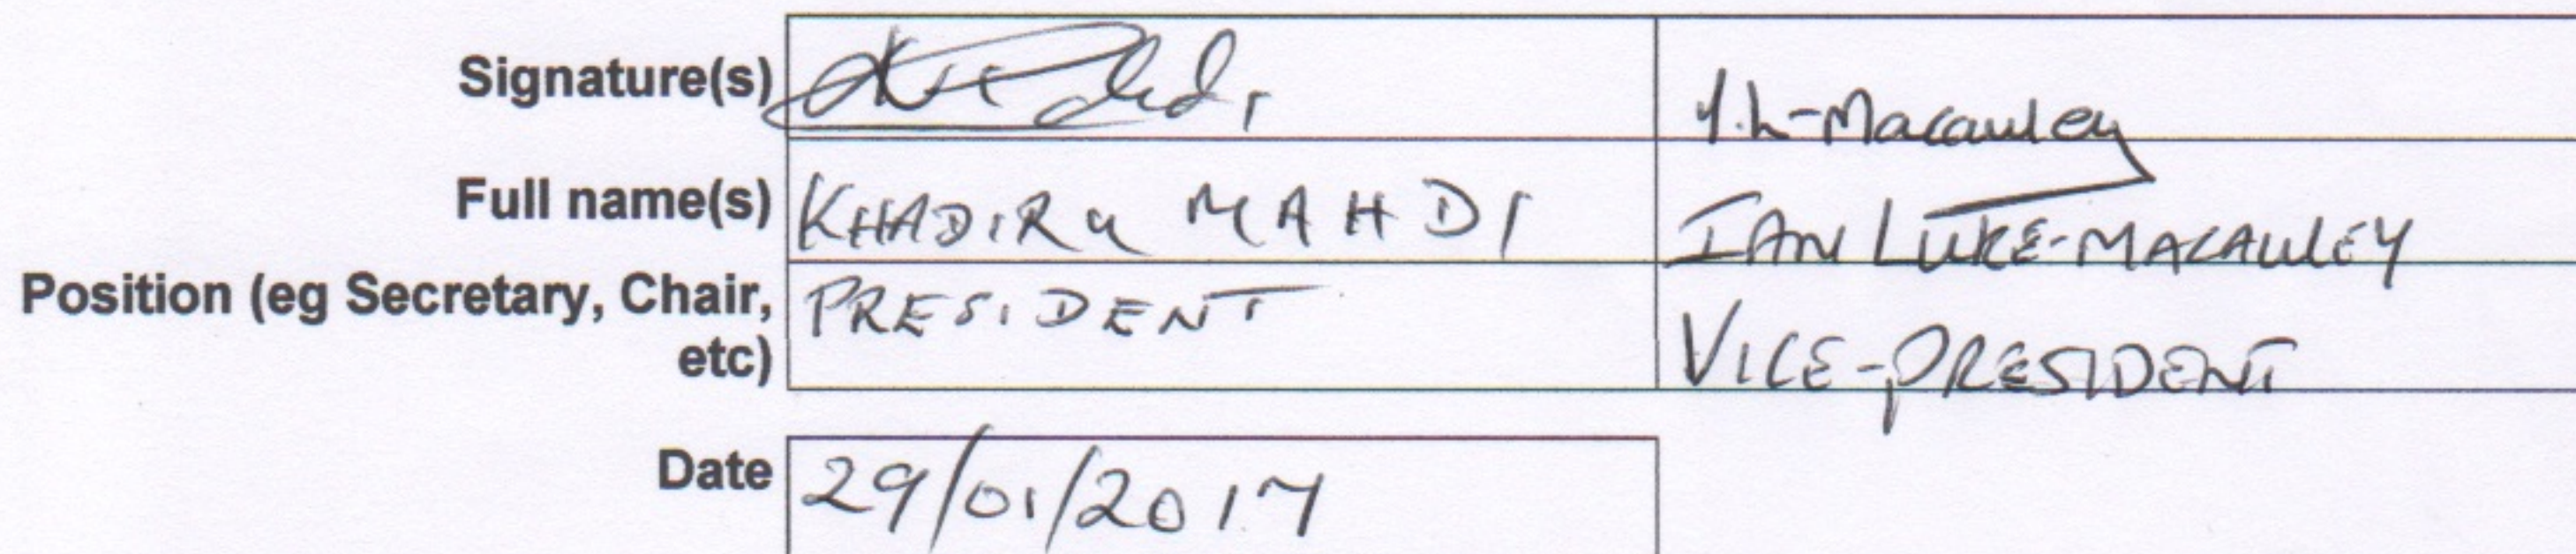 Signature(s) Y.L-Macauley
Full name(s) KHADIRU MAHDI IAN LUKE-MACAULEY
Position (eg Secretary, Chair,
etc) PRESIDENT VICE-PRESIDENT
Date 29/01/2017